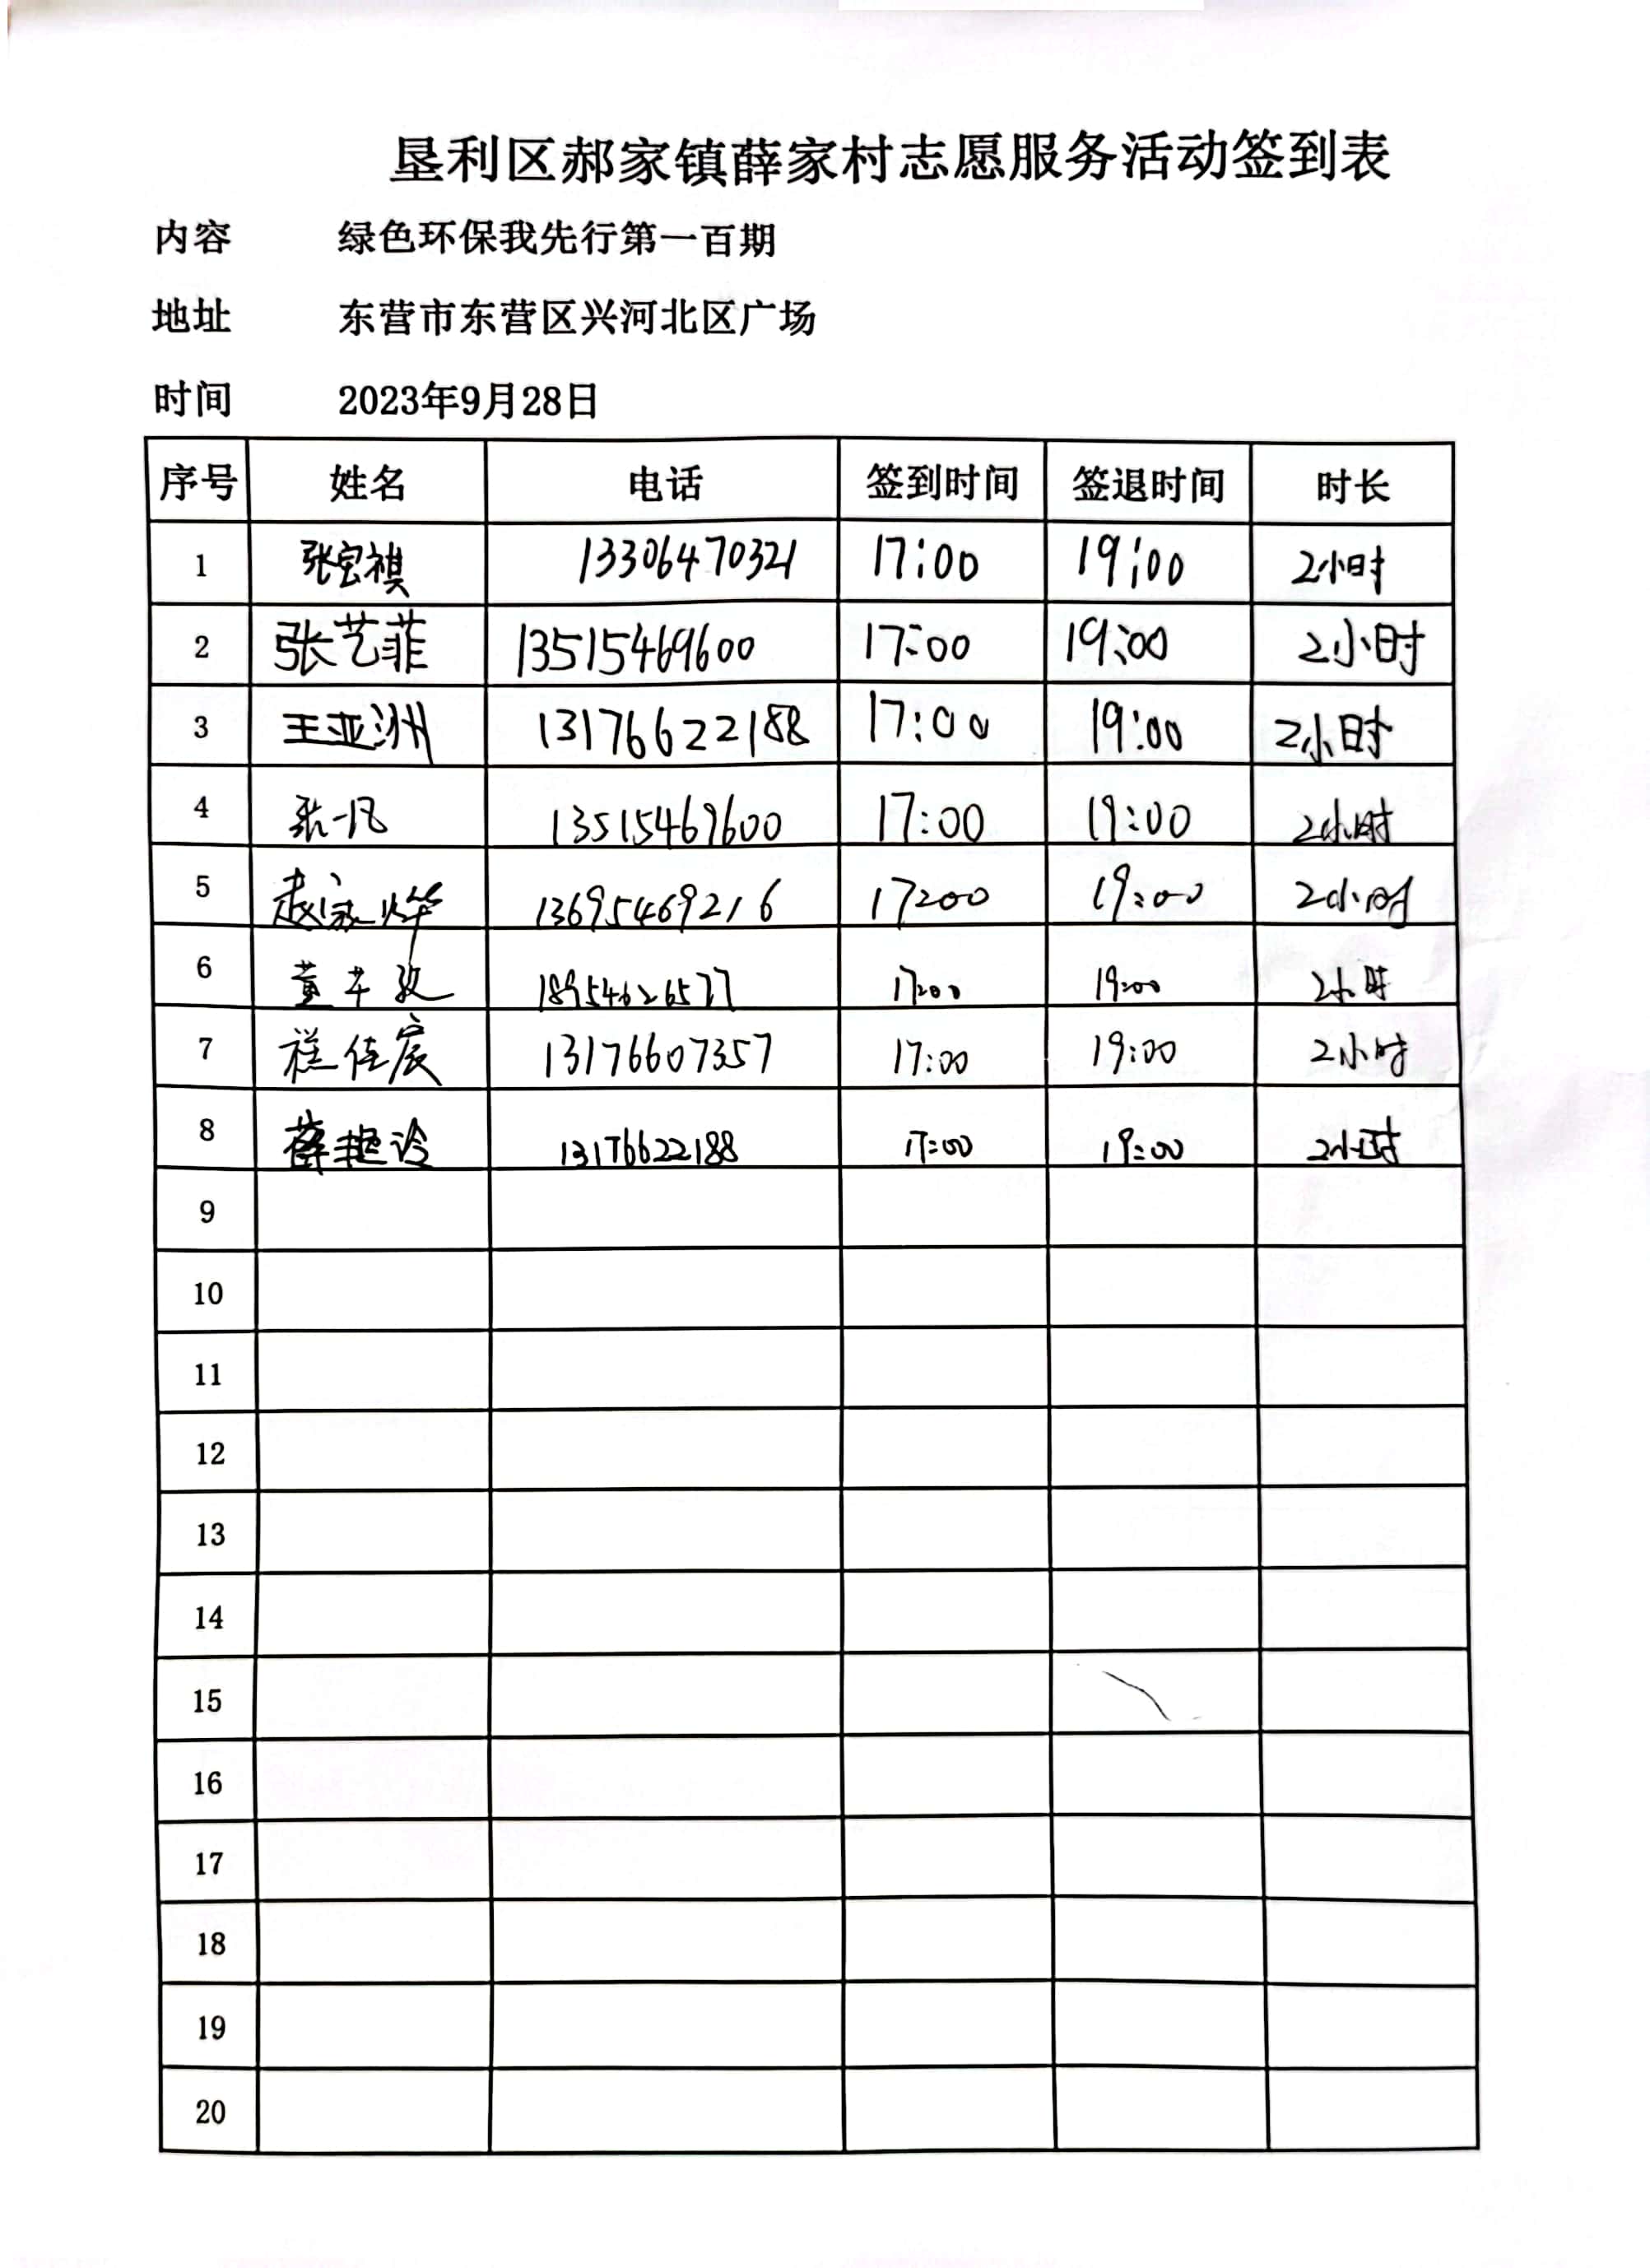 垦利区郝家镇薛家村志愿服务活动签到表
内容 绿色环保我先行第一百期
地址 东营市东营区兴河北区广场
时间 2023年9月28日
序号 姓名 电话 签到时间 签退时间 时长
1 张宝祺 13306470321 17:00 19:00 2小时
2 张艺菲 13515469600 17:00 19:00 2小时
3 王亚洲 13176622188 17:00 19:00 2小时
4 张一凡 13515469600 17:00 19:00 2小时
5 赵家烨 13695469216 17:00 19:00 2小时
6 董 18954626577 17:00 19:00 2小时
7 佳宸 13176607357 17:00 19:00 2小时
8 薛 13176622188 17:00 19:00 2小时
9
10
11
12
13
14
15
16
17
18
19
20